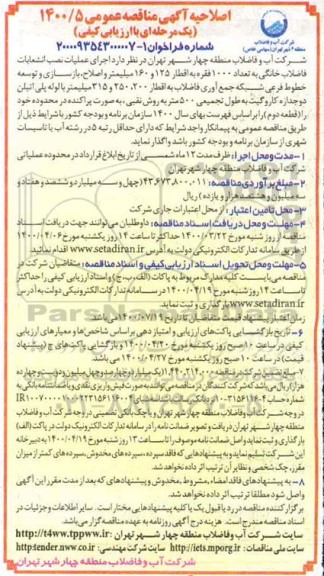 شرکت آب و فاضلاب
منطقه ۴ شهر تهران (سهامی خاص)
اصلاحیه آگهی مناقصه عمومی ۱۴۰۰/۵
(یک مرحله ای با ارزیابی کیفی)
شماره فراخوان ۱-۲۰۰۰۰۹۳۵۴۳۰۰۰۰۰۷
شرکت آب و فاضلاب منطقه چهار شهر تهران در نظر دارد اجرای عملیات نصب انشعابات
فاضلاب خانگی به تعداد ۱۰۰۰ فقره به اقطار ۱۲۵ و ۱۶۰ میلیمتر و اصلاح، بازسازی و توسعه
خطوط فرعی شبکه جمع آوری فاضلاب به اقطار ۲۰۰، ۲۵۰ و ۳۱۵ میلیمتر با لوله پلی اتیلن
دوجداره کاروگیت به طول تجمیعی ۵۰۰ متر به روش نقبی، به صورت پراکنده در محدوده خود
را (قطعه دوم) بر اساس فهرست بهای سال ۱۴۰۰ سازمان برنامه و بودجه کشور با شرایط ذیل از
طریق مناقصه عمومی به پیمانکار واجد شرایط که دارای حداقل رتبه ۵ در رشته آب یا تاسیسات
شهری از سازمان برنامه و بودجه کشور باشد واگذار نماید.
۱-مدت و محل اجرا: ظرف مدت ۱۲ ماه شمسی از تاریخ ابلاغ قرارداد در محدوده عملیاتی
شرکت آب و فاضلاب منطقه چهار شهر تهران
۲-مبلغ برآوردی مناقصه: ۴۳,۶۷۳,۸۰۰,۰۱۱ (چهل و سه میلیارد و ششصد و هفتاد و
سه میلیون و هشتصد هزار و یازده) ریال
۳-محل تامین اعتبار: از محل اعتبارات جاری شرکت
۴-مهلت و محل دریافت اسناد مناقصه: داوطلبان می‌توانند جهت دریافت اسناد
مناقصه از روز شنبه مورخ ۱۴۰۰/۰۳/۲۲ حداکثر تا ساعت ۱۴ روز یکشنبه مورخ ۱۴۰۰/۰۴/۰۶
از طریق سامانه تدارکات الکترونیکی دولت به آدرس www.setadiran.ir اقدام نمایند.
۵-مهلت و محل تحویل اسناد ارزیابی کیفی و اسناد مناقصه: متقاضیان شرکت در
مناقصه می بایست کلیه مدارک مربوط به پاکات (الف، ب، ج) و اسناد ارزیابی کیفی را حداکثر
تا ساعت ۱۴ روز شنبه مورخ ۱۴۰۰/۰۴/۱۹ در سامانه تدارکات الکترونیکی دولت به آدرس
www.setadiran.ir بارگذاری و ثبت نماید.
زمان اعتبار پیشنهاد قیمت متقاضیان تا تاریخ ۱۴۰۰/۰۷/۱۹ می باشد.
۶- تاریخ بازگشایی پاکت های ارزیابی و امتیازدهی بر اساس شاخص ها و معیارهای ارزیابی
کیفی در ساعت ۱۰ صبح روز یکشنبه مورخ ۱۴۰۰/۰۴/۲۰ و بازگشایی پاکت های ج (پیشنهاد
قیمت) در ساعت ۱۰ صبح روز یکشنبه مورخ ۱۴۰۰/۰۴/۲۷ می باشد.
هزار ریال می باشد که شرکت کنندگان در مناقصه می توانند به صورت فیش واریز نقدی و یا ضمانتنامه بانکی به
در وجه شرکت آب و فاضلاب منطقه چهار شهر تهران و یا چک بانکی تضمینی در وجه شرکت آب و فاضلاب
منطقه چهار شهر تهران دریافت و تصویر ضمانت نامه را در سامانه تدارکات الکترونیکی دولت در پاکت (الف)
بارگذاری و ثبت نماید و اصل ضمانت نامه موصوف را تا ساعت ۱۳ روز شنبه مورخ ۱۴۰۰/۰۴/۱۹ به دبیرخانه
این شرکت تسلیم نماید و به پیشنهادهایی که فاقد سپرده، سپرده های مخدوش، سپرده های کمتر از میزان
مقرر، چک شخصی و نظایر آن ترتیب اثر داده نخواهد شد.
۸- به پیشنهادهای فاقد امضاء، مشروط، مخدوش و پیشنهادهایی که بعد از مدت مقرر این آگهی
واصل شود مطلقا ترتیب اثر داده نخواهد شد.
برگزار کننده مناقصه در رد یا قبول یک یا کلیه پیشنهادهایی مختار است. سایر اطلاعات و جزئیات در
اسناد مناقصه مندرج است. هزینه درج آگهی روزنامه به عهده مناقصه گزار می باشد.
سایت شرکت آب و فاضلاب منطقه چهار شهر تهران: http://t4ww.tppww.ir
سایت ملی مناقصات: http://iets.mporg.ir سایت شرکت مهندسی: http:tender.nww.co.ir
شرکت آب و فاضلاب منطقه چهار شهر تهران